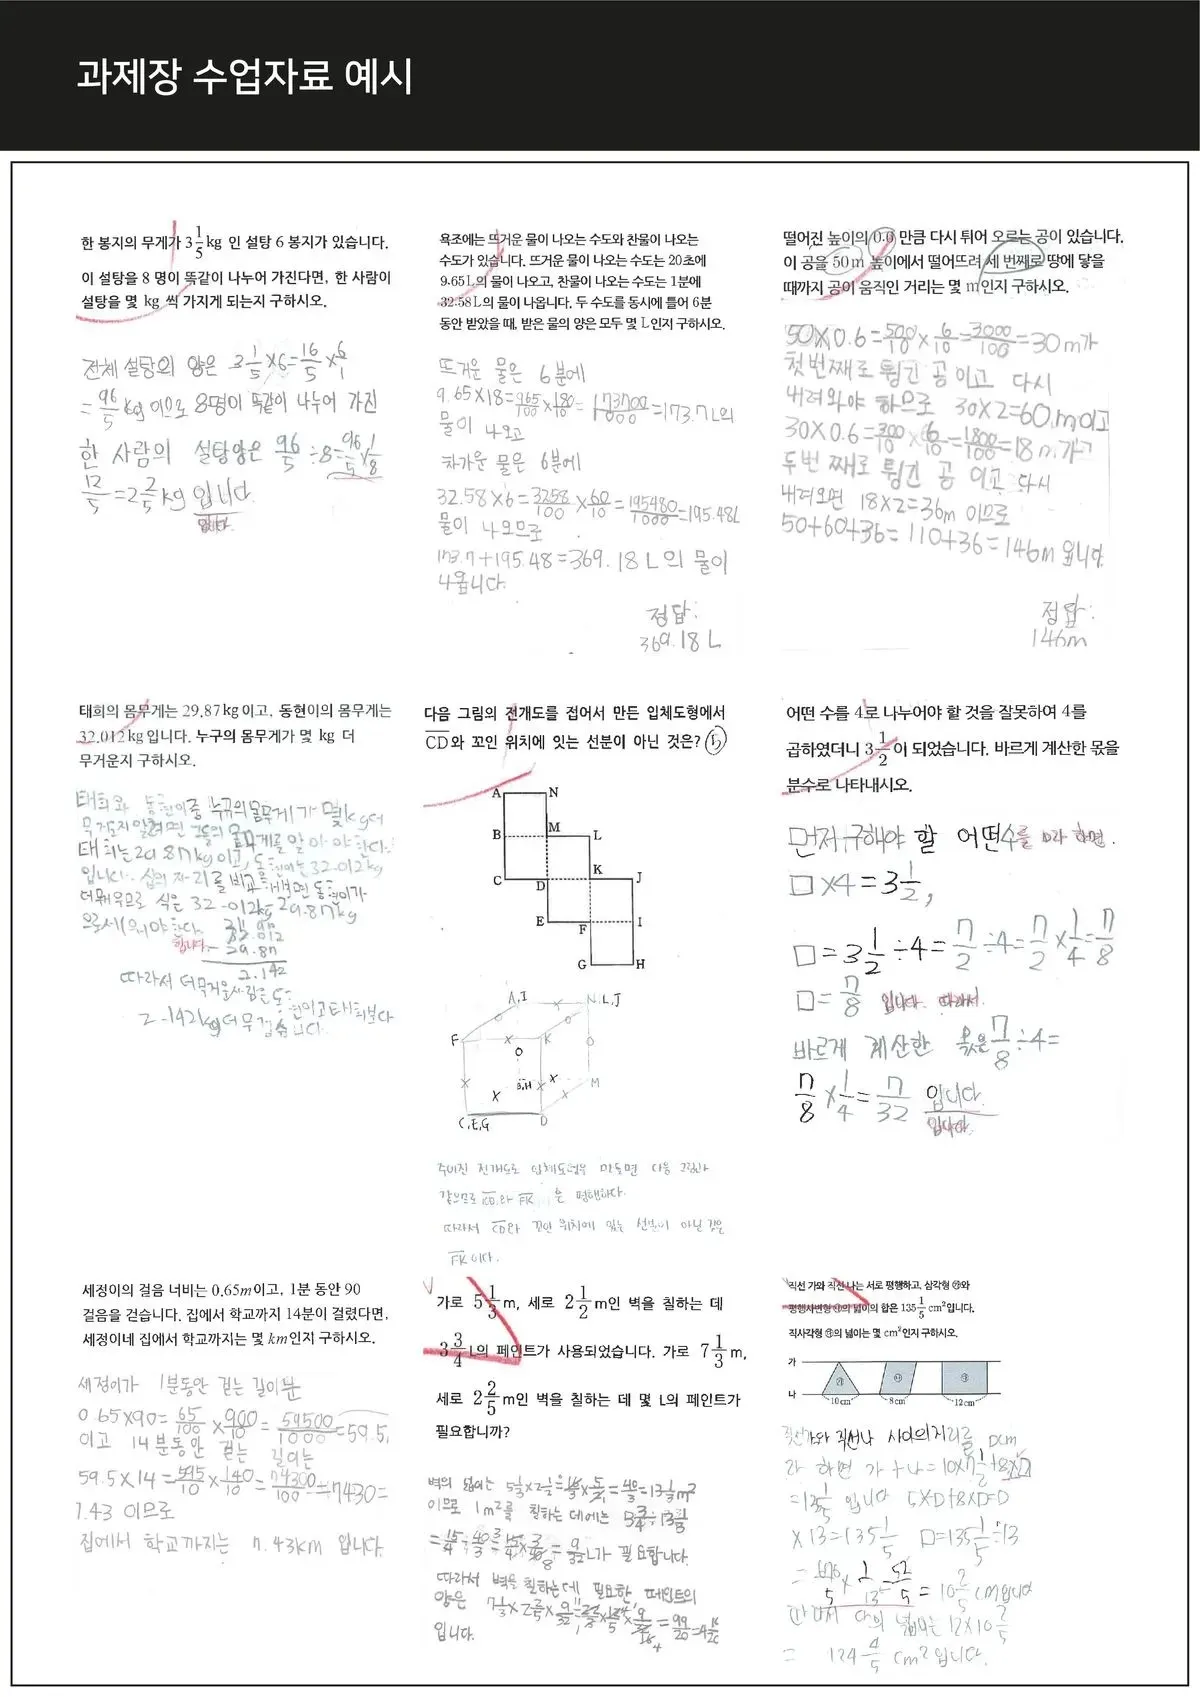 과제장 수업자료 예시
한 봉지의 무게가 3 1/5 kg 인 설탕 6 봉지가 있습니다.
이 설탕을 8 명이 똑같이 나누어 가진다면, 한 사람이
설탕을 몇 kg 씩 가지게 되는지 구하시오.
전체 설탕의 양은 3 1/5 ×6= 16/5 × 6/1
= 96/5 kg 이므로 8명이 똑같이 나누어 가진
한 사람의 설탕양은 96/5 ÷8= 96/5 × 1/8
12/5 =2 2/5 kg 입니다.
입니다.
욕조에는 뜨거운 물이 나오는 수도와 찬물이 나오는
수도가 있습니다. 뜨거운 물이 나오는 수도는 20초에
9.65L의 물이 나오고, 찬물이 나오는 수도는 1분에
32.58L의 물이 나옵니다. 두 수도를 동시에 틀어 6분
동안 받았을 때, 받은 물의 양은 모두 몇 L인지 구하시오.
뜨거운 물은 6분에
9.65×18= 965/100 × 180/10 = 173700/1000 =173.7L의
물이 나오고
차가운 물은 6분에
32.58×6= 3258/100 × 60/10 = 195480/1000 =195.48L
물이 나오므로
173.7+195.48=369.18L의 물이
나옵니다.
정답:
369.18L
떨어진 높이의 0.6 만큼 다시 튀어 오르는 공이 있습니다.
이 공을 50m 높이에서 떨어뜨려 세 번째로 땅에 닿을
때까지 공이 움직인 거리는 몇 m인지 구하시오.
50×0.6= 500/10 × 6/10 = 3000/100 =30m가
첫번째로 튕긴 공이고 다시
내려와야 하므로 30×2=60m이고
30×0.6= 300/10 × 6/10 = 1800/100 =18m가고
두번째로 튕긴 공이고 다시
내려오면 18×2=36m 이므로
50+60+36=110+36=146m 입니다.
정답:
146m
태희의 몸무게는 29.87kg이고, 동현이의 몸무게는
32.012kg입니다. 누구의 몸무게가 몇 kg 더
무거운지 구하시오.
태희와 동현이중 누구의몸무게가 몇kg더
무거운지알려면 그들의 몸무게를 알아야 한다.
태희는29.87kg이고, 동현이는32.012kg
입니다. 십의 자리를 비교해보면 동현이가
더무거우므로 식은 32.012kg-29.87kg
으로세워야한다.
합니다.
32.012
29.87
2.142
따라서 더무거운사람은동
현이고태희보다
2.142kg더무겁습니다.
다음 그림의 전개도를 접어서 만든 입체도형에서
CD와 꼬인 위치에 잇는 선분이 아닌 것은? ⑤
A N
B M L
C D K J
E F I
G H
A,I N,L,J
F K
B,H M
C,E,G D
주어진 전개도로 입체도형을 만들면 다음 그림과
같으므로 CD와 FK 은 평행하다.
따라서 CD와 꼬인 위치에 있는 선분이 아닌 것은
FK이다.
어떤 수를 4로 나누어야 할 것을 잘못하여 4를
곱하였더니 3 1/2 이 되었습니다. 바르게 계산한 몫을
분수로 나타내시오.
먼저 구해야 할 어떤수를 □라 하면.
□×4=3 1/2,
□=3 1/2 ÷4= 7/2 ÷4= 7/2 × 1/4 = 7/8
□= 7/8 입니다. 따라서
바르게 계산한 몫은 7/8 ÷4=
7/8 × 1/4 = 7/32 입니다.
입니다.
세정이의 걸음 너비는 0.65m이고, 1분 동안 90
걸음을 걷습니다. 집에서 학교까지 14분이 걸렸다면,
세정이네 집에서 학교까지는 몇 km인지 구하시오.
세정이가 1분동안 걷는 길이는
0.65×90= 65/100 × 900/10 = 59500/1000 =59.5,
이고 14분동안 걷는 길이는
59.5×14= 595/10 × 140/10 = 74300/100 =7430=
7.43 이므로
집에서 학교까지는 7.43km 입니다.
가로 5 1/3 m, 세로 2 1/2 m인 벽을 칠하는 데
3 3/4 L의 페인트가 사용되었습니다. 가로 7 1/3 m,
세로 2 2/5 m인 벽을 칠하는 데 몇 L의 페인트가
필요합니까?
벽의 넓이는 5 1/3 ×2 1/2 = 16/3 × 5/2 = 40/3 =13 1/3 m²
이므로 1m²를 칠하는 데에는 3 3/4 ÷13 1/3
= 15/4 ÷ 40/3 = 15/4 × 3/40 = 9/32 L가 필요합니다.
따라서 벽을 칠하는데 필요한 페인트의
양은 7 1/3 ×2 2/5 × 9/32 = 22/3 × 12/5 × 9/32 = 99/20 =4 19/20
입니다.
직선 가와 직선 나는 서로 평행하고, 삼각형 ㉮와
평행사변형 ㉯의 넓이의 합은 135 1/5 cm²입니다.
직사각형 ㉰의 넓이는 몇 cm²인지 구하시오.
가
㉮ ㉯ ㉰
나
10cm 8cm 12cm
직선가와 직선나 사이의거리를 □cm
라 하면 가+나=10×□× 1/2 +8×□
=135 1/5 입니다 5×□+8×□=□
×13=135 1/5 □=135 1/5 ÷13
= 676/5 × 1/13 = 52/5 =10 2/5 cm입니다
따라서 다의 넓이는 12×10 2/5
= 124 4/5 cm²입니다.